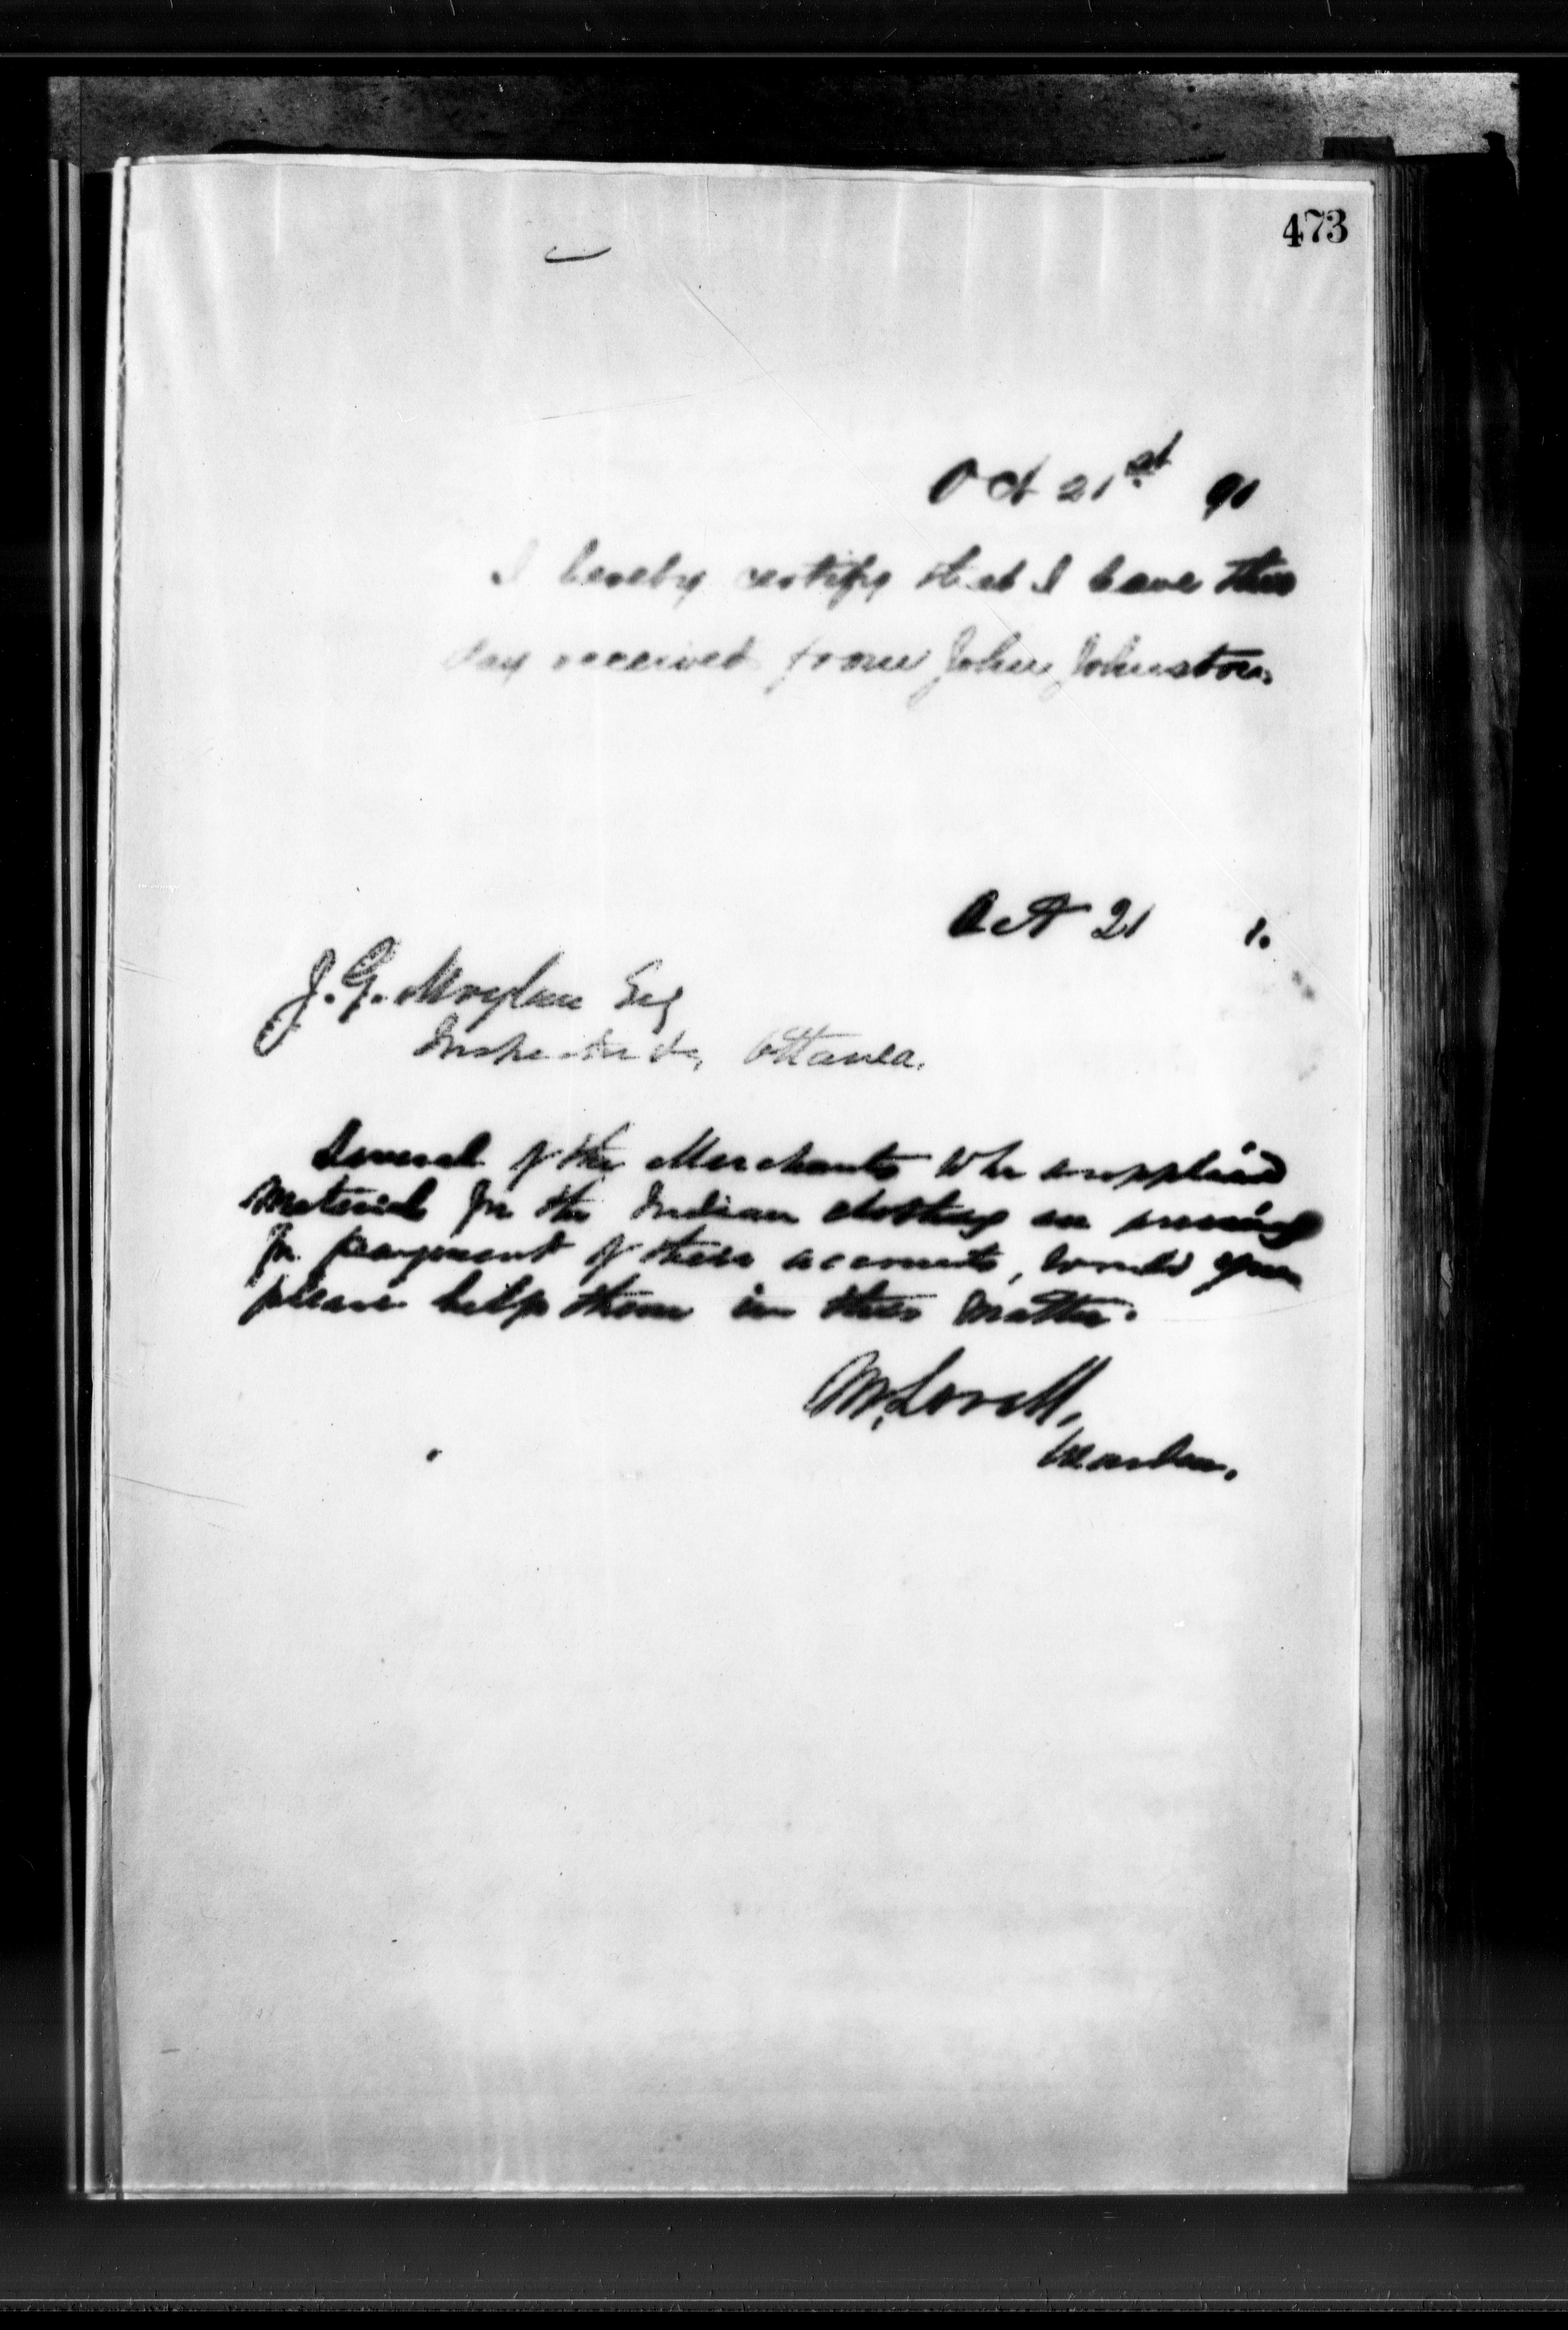 473
Oct 21st 91
I hereby certify that I have this
day received from John Johnston.
Oct 21 1.
J. G. Moylan Esq
Ottawa.
Several of the Merchants who supplied
material for the Indian clothing are
for payment of their accounts, would you
please help them in this matter.
M. Lavell,
Warden.